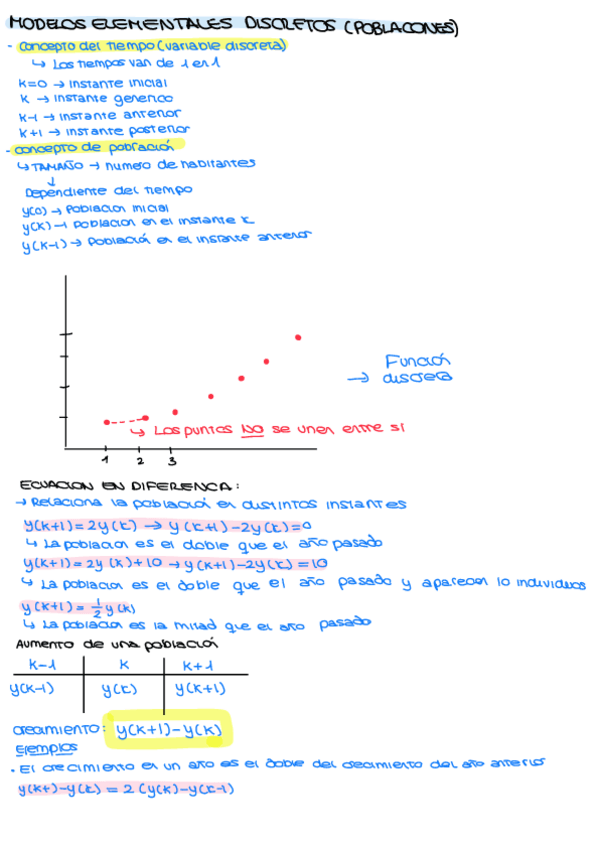 MODELOS ELEMENTALES DISCRETOS (POBLACONES)
- concepto del tiempo (variable discreta)
↳ Los tiempos van de 1 en 1
k=0 → instante inicial
k → instante generico
k-1 → instante anterior
k+1 → instante posterior
- concepto de población
↳ TAMAÑO → numero de habitantes
↓
Dependiente del tiempo
y(0) → Población inicial
y(k) → población en el instante k
y(k-1) → Población en el instante anterior
Función
→ discreta
↳ Los puntos NO se unen entre si
1 2 3
ECUACION EN DIFERENCA:
→ Relaciona la población en distintos instantes
y(k+1) = 2y(k) → y(k+1)-2y(k)=0
↳ La poblacion es el doble que el año pasado
y(k+1) = 2y(k)+10 → y(k+1)-2y(k)=10
↳ La poblacion es el doble que el año pasado y aparecen 10 individuos
y(k+1) = 1/2 y(k)
↳ La poblacion es la mitad que el año pasado
Aumento de una población
k-1 k k+1
y(k-1) y(k) y(k+1)
crecimiento: y(k+1)-y(k)
Ejemplos
• El crecimiento en un año es el doble del crecimiento del año anterior
y(k+)-y(k) = 2 (y(k)-y(k-1)